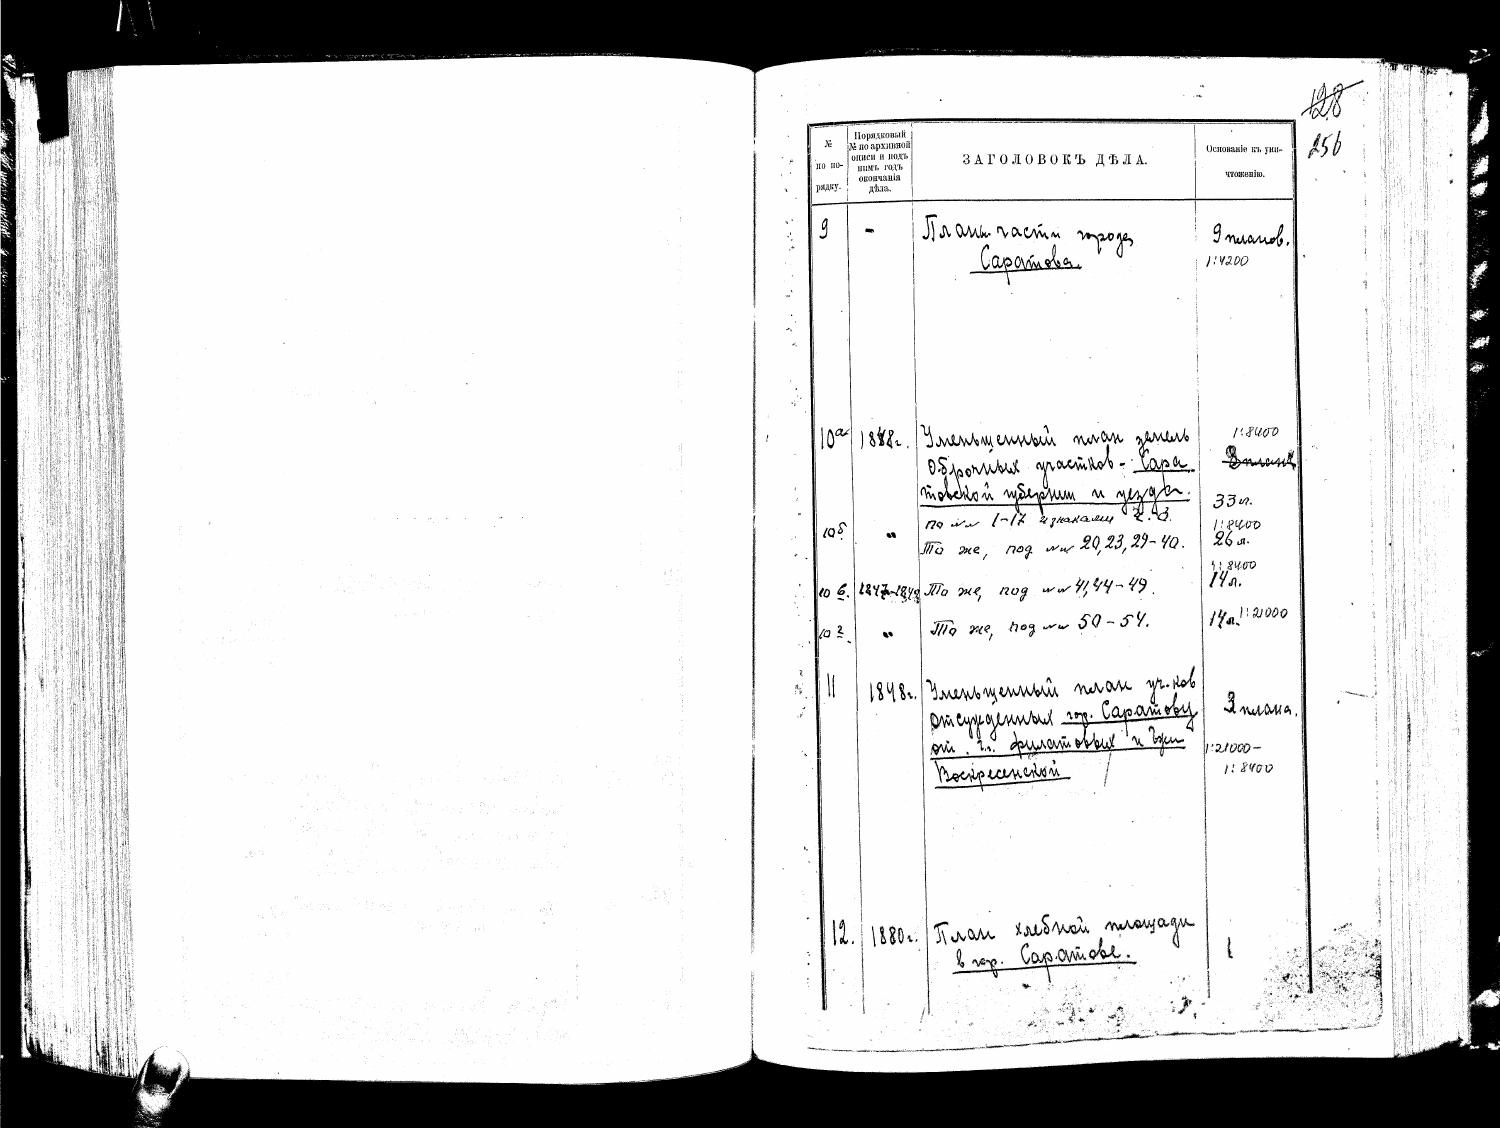 128
256
№
по по-
рядку.
Порядковый
№ по архивной
описи и подъ
нимъ годъ
окончанія
дѣла.
ЗАГОЛОВОКЪ ДѢЛА.
Основаніе къ уни-
чтоженію.
9 - Планы части города 9 планов.
Саратова. 1:4200
10а 1848г. Уменьшенный план земель 1:8400
Оброчных участков - Сара 3 плана
товской губернии и уезда. 33 л.
по №№ 1-17 и знаками 1:8400
10б " То же, под №№ 20, 23, 29-40. 26 л.
1:8400
10 в. 1847-1849 То же, под №№ 41, 44-49. 14 л.
10 г. " То же, под №№ 50-54. 14 л. 1:21000
11 1848г. Уменьшенный план уч-ков
отсужденных гор. Саратову 2 плана.
от г.г. Филатовых и 1:21000-
Воскресенской 1:8400
12. 1880г. План хлебной площади
в гор. Саратове. 1